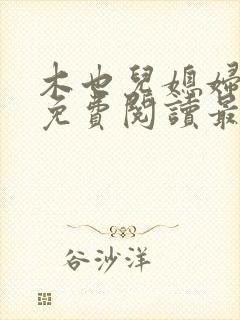 木也兒媳婦
免費閱讀最
谷沙洋